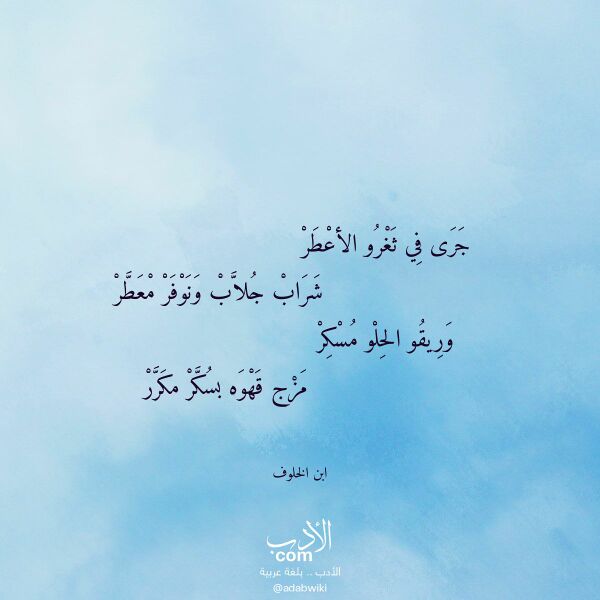 جَرَى فِي ثَغْرُو الأَعْطَرْ
شَرَابْ جُلاَّبْ وَنَوْفَرْ مْعَطَّرْ
وَرِيقُو الحِلْو مُسْكِرْ
مَزْج قَهْوَه بسُكَّرْ مكَرَّرْ
ابن الخلوف
الأدب
com
الأدب .. بلغة عربية
@adabwiki